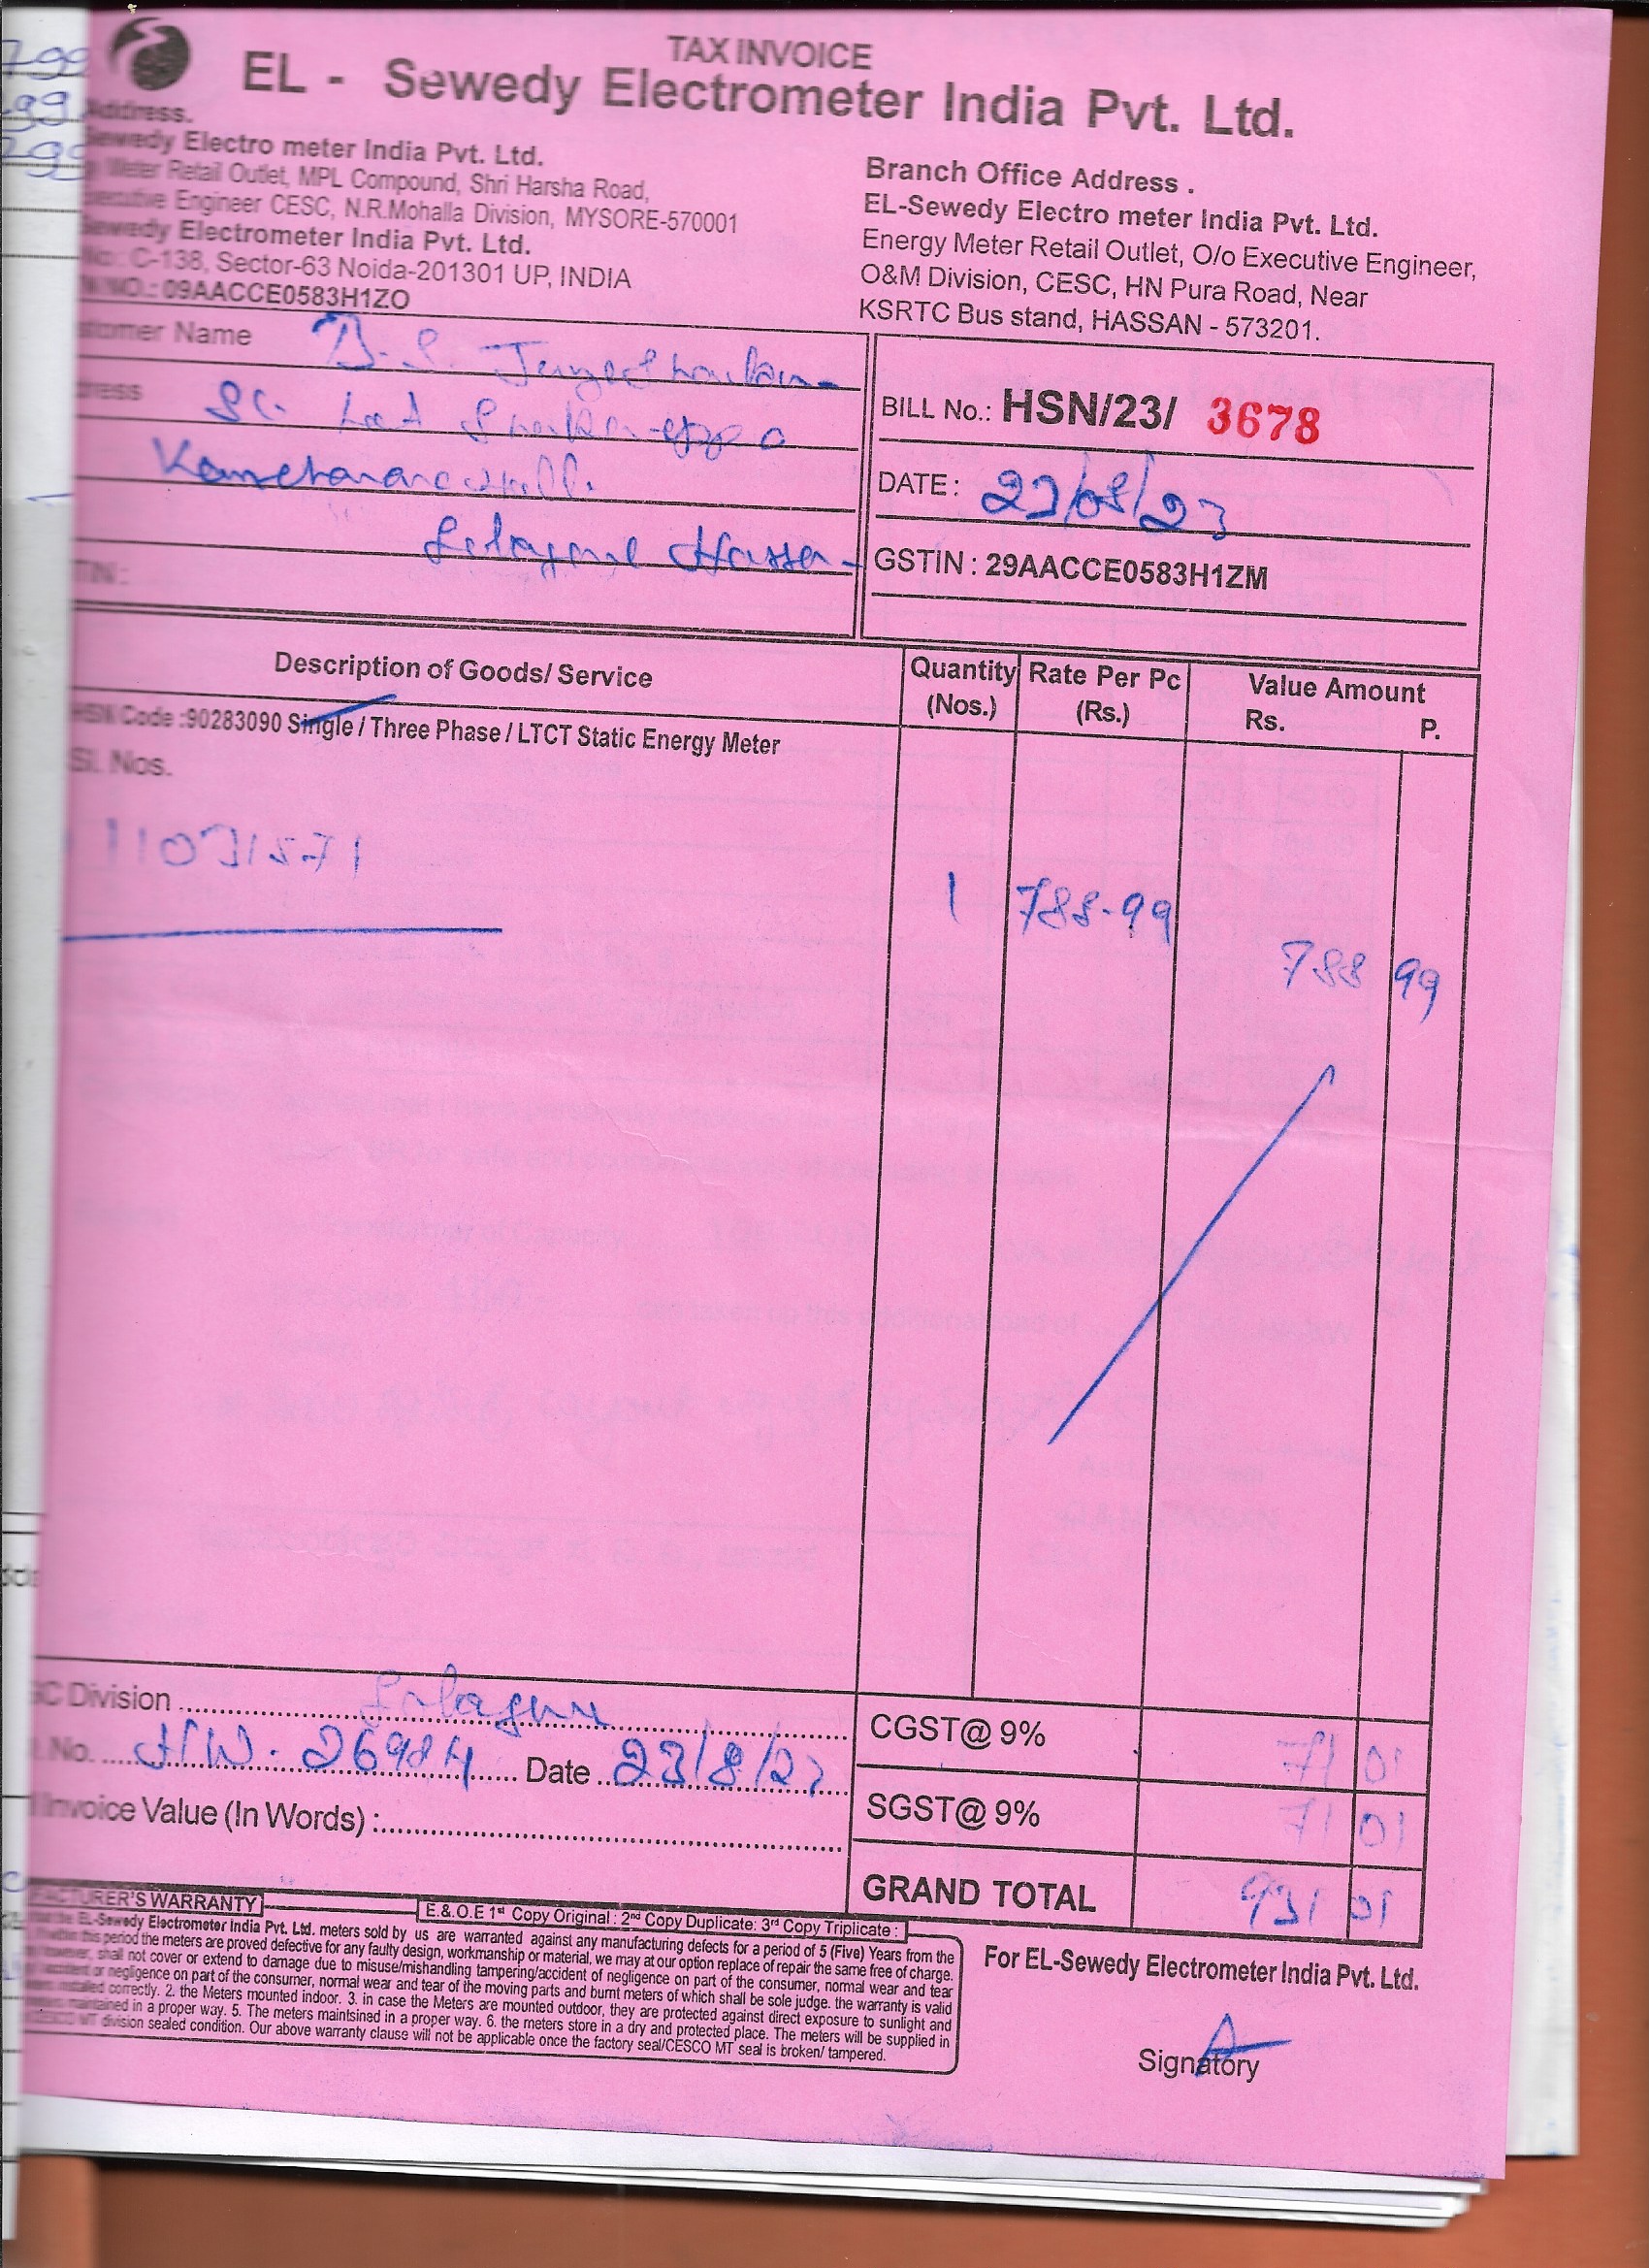 TAX INVOICE
EL - Sewedy Electrometer India Pvt. Ltd.
Address.
Sewedy Electro meter India Pvt. Ltd.
Meter Retail Outlet, MPL Compound, Shri Harsha Road,
Engineer CESC, N.R.Mohalla Division, MYSORE-570001
Sewedy Electrometer India Pvt. Ltd.
C-138, Sector-63 Noida-201301 UP, INDIA
NO.: 09AACCE0583H1ZO
Branch Office Address .
EL-Sewedy Electro meter India Pvt. Ltd.
Energy Meter Retail Outlet, O/o Executive Engineer,
O&M Division, CESC, HN Pura Road, Near
KSRTC Bus stand, HASSAN - 573201.
tomer Name
ress
Hassan
TIN :
BILL No.: HSN/23/ 3678
DATE : 23/08/23
GSTIN : 29AACCE0583H1ZM
Description of Goods/ Service
Quantity (Nos.)
Rate Per Pc (Rs.)
Value Amount
Rs. P.
HSN Code :90283090 Single / Three Phase / LTCT Static Energy Meter
Sl. Nos.
11031571
1 788-99
788 99
C Division
No. Date 23/8/23
Invoice Value (In Words) :
CGST@ 9% 71 01
SGST@ 9% 71 01
GRAND TOTAL 931 01
FACTURER'S WARRANTY
E.& O.E 1st Copy Original : 2nd Copy Duplicate: 3rd Copy Triplicate :
EL-Sewedy Electrometer India Pvt. Ltd. meters sold by us are warranted against any manufacturing defects for a period of 5 (Five) Years from the
this period the meters are proved defective for any faulty design, workmanship or material, we may at our option replace of repair the same free of charge.
however, shall not cover or extend to damage due to misuse/mishandling tampering/accident of negligence on part of the consumer, normal wear and tear
accident or negligence on part of the consumer, normal wear and tear of the moving parts and burnt meters of which shall be sole judge. the warranty is valid
installed correctly. 2. the Meters mounted indoor. 3. in case the Meters are mounted outdoor, they are protected against direct exposure to sunlight and
maintained in a proper way. 5. The meters maintsined in a proper way. 6. the meters store in a dry and protected place. The meters will be supplied in
MT division sealed condition. Our above warranty clause will not be applicable once the factory seal/CESCO MT seal is broken/ tampered.
For EL-Sewedy Electrometer India Pvt. Ltd.
Signatory